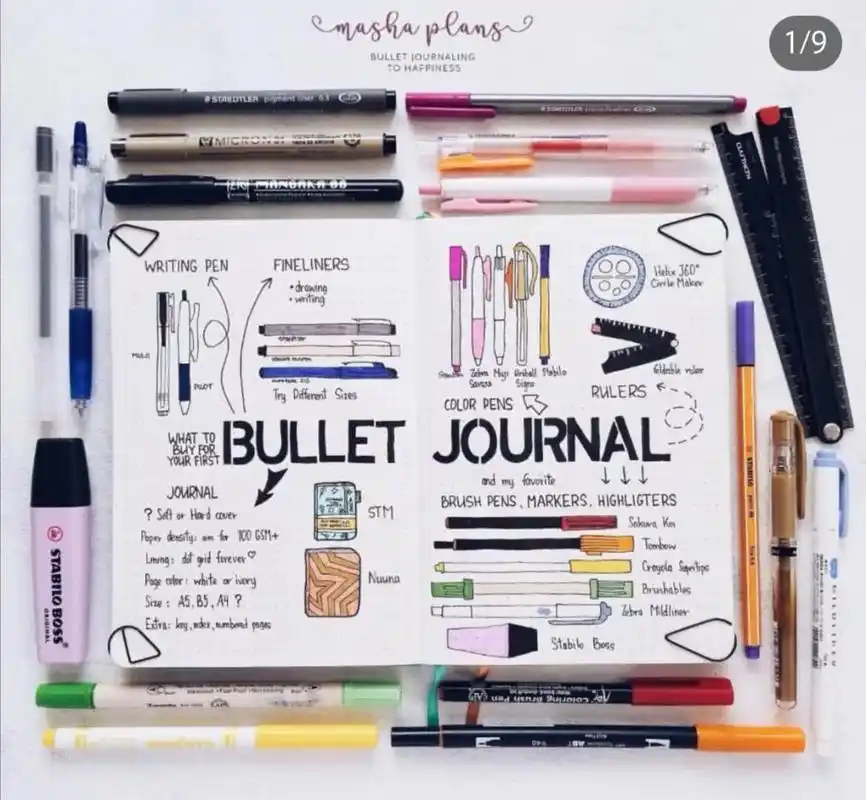 masha plans
BULLET JOURNALING
TO HAPPINESS
1/9
STAEDTLER pigment liner 0.3
STAEDTLER
MICRON
MANGAKA
WRITING PEN
FINELINERS
• drawing
• writing
Muji
PILOT
Staedtler
Try Different Sizes
WHAT TO
BUY FOR
YOUR FIRST
BULLET
JOURNAL
? Soft or Hard cover
Paper density: aim for 100 GSM+
Lining: dot grid forever ♡
Page color: white or ivory
Size: A5, B5, A4 ?
Extra: key, index, numbered pages
STM
Nuuna
Zebra
Sarasa
Muji
Uniball
Signo
Stabilo
Helix 360°
Circle Maker
foldable ruler
RULERS
COLOR PENS
JOURNAL
and my favorite
BRUSH PENS, MARKERS, HIGHLIGTERS
Sakura Koi
Tombow
Crayola Supertips
Brushables
Zebra Mildliner
Stabilo Boss
STABILO BOSS
ORIGINAL
STABILO
Coloring Brush Pen
ABT
940